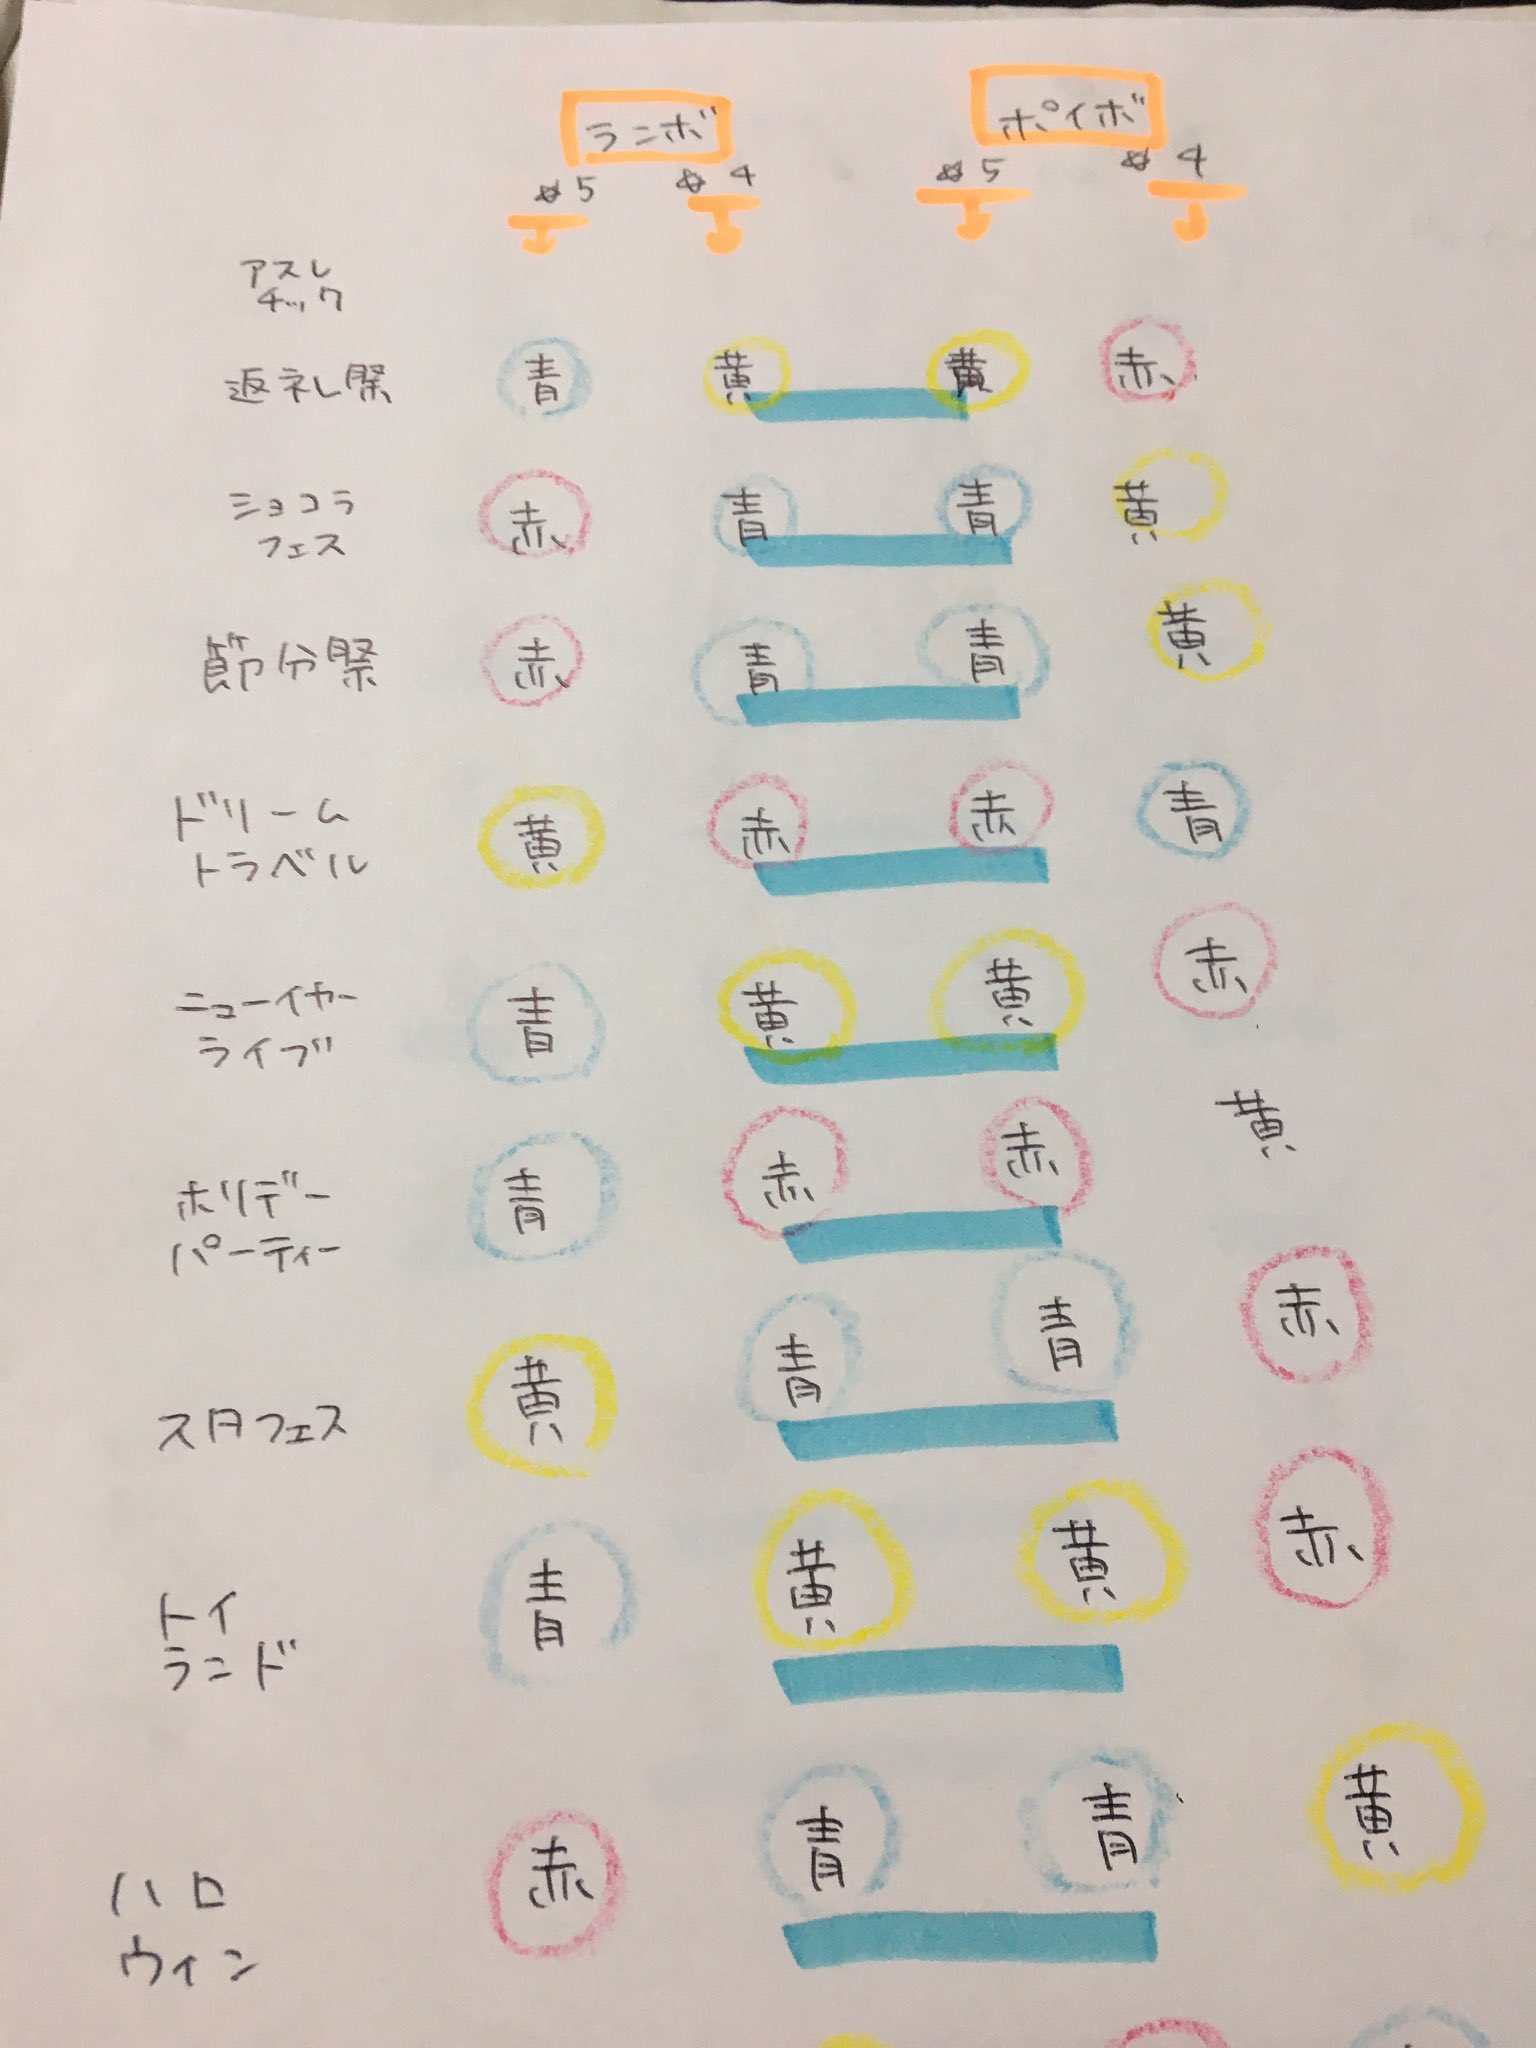 ランボ ポイボ
☆5 ☆4 ☆5 ☆4
アスレ
チック
返礼祭 青 黄 黄 赤
ショコラ
フェス 赤 青 青 黄
節分祭 赤 青 青 黄
ドリーム
トラベル 黄 赤 赤 青
ニューイヤー
ライブ 青 黄 黄 赤
ホリデー
パーティー 青 赤 赤 黄
スタフェス 黄 青 青 赤
トイ
ランド 青 黄 黄 赤
ハロ
ウィン 赤 青 青 黄